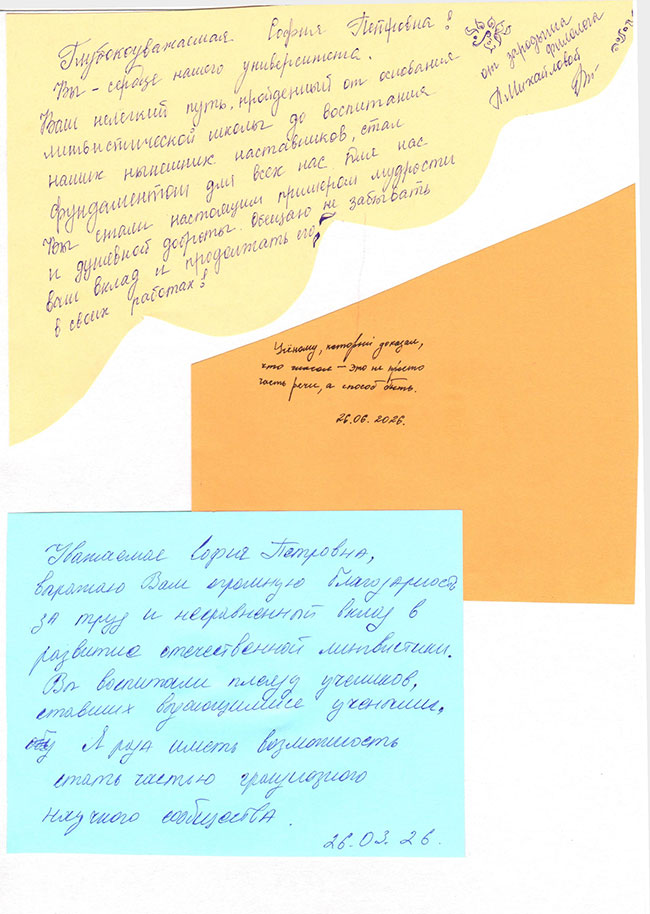 Глубокоуважаемая София Петровна!
Вы - сердце нашего университета.
Ваш нелегкий путь, пройденный от основания
лингвистической школы до воспитания
наших нынешних наставников, стал
фундаментом для всех нас
Вы стали настоящим примером мудрости
и душевной доброты. Обещаю не забывать
ваш вклад и продолжать его
в своих работах!
от зародыша
филолога
П. Михайловой
Учёному, который доказал,
что глагол — это не просто
часть речи, а способ быть.
26.06.2026.
Уважаемая София Петровна,
выражаю Вам огромную благодарность
за труд и несравненный вклад в
развитие отечественной лингвистики.
Вы воспитали плеяду учеников,
ставших выдающимися учеными,
Я рад иметь возможность
стать частью грандиозного
научного сообщества.
26.03.26.